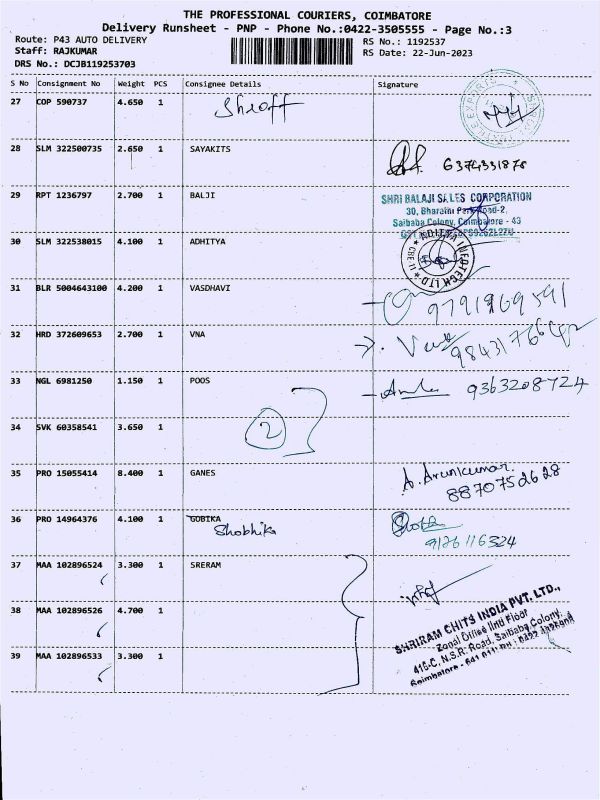 THE PROFESSIONAL COURIERS, COIMBATORE
Delivery Runsheet - PNP - Phone No.:0422-3505555 - Page No.:3
Route: P43 AUTO DELIVERY
RS No.: 1192537
Staff: RAJKUMAR
RS Date: 22-Jun-2023
DRS No.: DCJB119253703
S No Consignment No Weight PCS Consignee Details Signature
27 COP 590737 4.650 1 Shroff
28 SLM 322500735 2.650 1 SAYAKITS 6374331878
29 RPT 1236797 2.700 1 BALJI
SHRI BALAJI SALES CORPORATION
30, Bharathi Park Road-2,
Saibaba Colony, Coimbatore - 43
30 SLM 322538015 4.100 1 ADHITYA
ADITYA INFOTECH LTD
31 BLR 5004643100 4.200 1 VASDHAVI
32 HRD 372609653 2.700 1 VNA
33 NGL 6981250 1.150 1 POOS 9363208724
34 SVK 60358541 3.650 1 2
35 PRO 15055414 8.400 1 GANES A. Arunkumar.
8870752628
36 PRO 14964376 4.100 1 GOBIKA
Shobhika 9126116324
37 MAA 102896524 3.300 1 SRERAM
38 MAA 102896526 4.700 1
SHRIRAM CHITS INDIA PVT. LTD.,
Zonal Office IInd Floor
416-C, N.S.R. Road, Saibaba Colony,
39 MAA 102896533 3.300 1